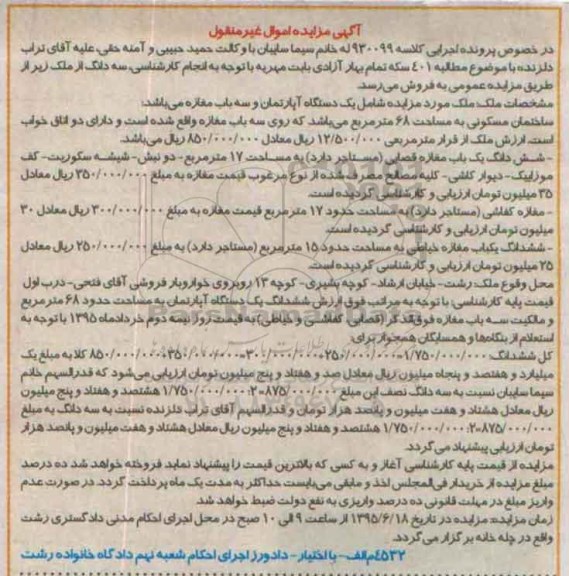 آگهی مزایده اموال غیرمنقول
در خصوص پرونده اجرایی کلاسه ۹۳۰۰۹۹ له خانم سیما سایبان با وکالت حمید حبیبی و آمنه حقی، علیه آقای تراب
دلزنده با موضوع مطالبه ٤۰۱ سکه تمام بهار آزادی بابت مهریه با توجه به انجام کارشناسی، سه دانگ از ملک زیر از
طریق مزایده عمومی به فروش می‌رسد.
مشخصات ملک: ملک مورد مزایده شامل یک دستگاه آپارتمان و سه باب مغازه می‌باشد:
ساختمان مسکونی به مساحت ۶۸ مترمربع می‌باشد. که روی سه باب مغازه واقع شده است و دارای دو اتاق خواب
است. ارزش ملک از قرار مترمربعی ۱۲/۵۰۰/۰۰۰ ریال معادل ۸۵۰/۰۰۰/۰۰۰ ریال می‌باشد.
- شش دانگ یک باب مغازه قصابی (مستاجر دارد) به مساحت ۱۷ مترمربع- دو نبش- شیشه سکوریت- کف
موزاییک- دیوار کاشی- کلیه مصالح مصرف شده از نوع مرغوب قیمت مغازه به مبلغ ۳۵۰/۰۰۰/۰۰۰ ریال معادل
۳۵ میلیون تومان ارزیابی و کارشناسی گردیده است.
- مغازه کفاشی (مستاجر دارد) به مساحت حدود ۱۷ مترمربع قیمت مغازه به مبلغ ۳۰۰/۰۰۰/۰۰۰ ریال معادل ۳۰
میلیون تومان ارزیابی و کارشناسی گردیده است.
- ششدانگ یکباب مغازه خیاطی به مساحت حدود ۱۵ مترمربع (مستاجر دارد) به مبلغ ۲۵۰/۰۰۰/۰۰۰ ریال معادل
۲۵ میلیون تومان ارزیابی و کارشناسی گردیده است.
محل وقوع ملک: رشت- خیابان ارشاد- کوچه بشیری- کوچه ۱۳ روبروی خواروبار فروشی آقای فتحی- درب اول
قیمت پایه کارشناسی: با توجه به مراتب فوق ارزش ششدانگ یک دستگاه آپارتمان به مساحت حدود ۶۸ مترمربع
و مالکیت سه باب مغازه فوق‌الذکر (قصابی، کفاشی و خیاطی) به قیمت روز نیمه دوم خردادماه ۱۳۹۵ با توجه به
استعلام از بنگاهها و همسایگان همجوار برای:
کل ششدانگ: ۱/۷۵۰/۰۰۰/۰۰۰=۲۵۰/۰۰۰/۰۰۰+۳۰۰/۰۰۰/۰۰۰+۳۵۰/۰۰۰/۰۰۰+۸۵۰/۰۰۰/۰۰۰ کلا به مبلغ یک
میلیارد و هفتصد و پنجاه میلیون ریال معادل صد و هفتاد و پنج میلیون تومان ارزیابی می‌شود که قدرالسهم خانم
سیما سایبان نسبت به سه دانگ نصف این مبلغ ۸۷۵/۰۰۰/۰۰۰=۲:۱/۷۵۰/۰۰۰/۰۰۰ هشتصد و هفتاد و پنج میلیون
ریال معادل هشتاد و هفت میلیون و پانصد هزار تومان و قدرالسهم آقای تراب دلزنده نسبت به سه دانگ به مبلغ
۸۷۵/۰۰۰/۰۰۰=۲:۱/۷۵۰/۰۰۰/۰۰۰ هشتصد و هفتاد و پنج میلیون ریال معادل هشتاد و هفت میلیون و پانصد هزار
تومان ارزیابی پیشنهاد می‌گردد.
مزایده از قیمت پایه کارشناسی آغاز و به کسی که بالاترین قیمت را پیشنهاد نماید فروخته خواهد شد ده درصد
مبلغ مزایده از خریدار فی‌المجلس اخذ و مابقی می‌بایست حداکثر به مدت یک ماه پرداخت گردد. در صورت عدم
واریز مبلغ در مهلت قانونی ده درصد واریزی به نفع دولت ضبط خواهد شد.
زمان مزایده: مزایده در تاریخ ۱۳۹۵/۶/۱۸ از ساعت ۹ الی ۱۰ صبح در محل اجرای احکام مدنی دادگستری رشت
واقع در چله خانه برگزار می‌گردد.
٤۵۳۲/م‌الف- با اختیار- دادورز اجرای احکام شعبه نهم دادگاه خانواده رشت